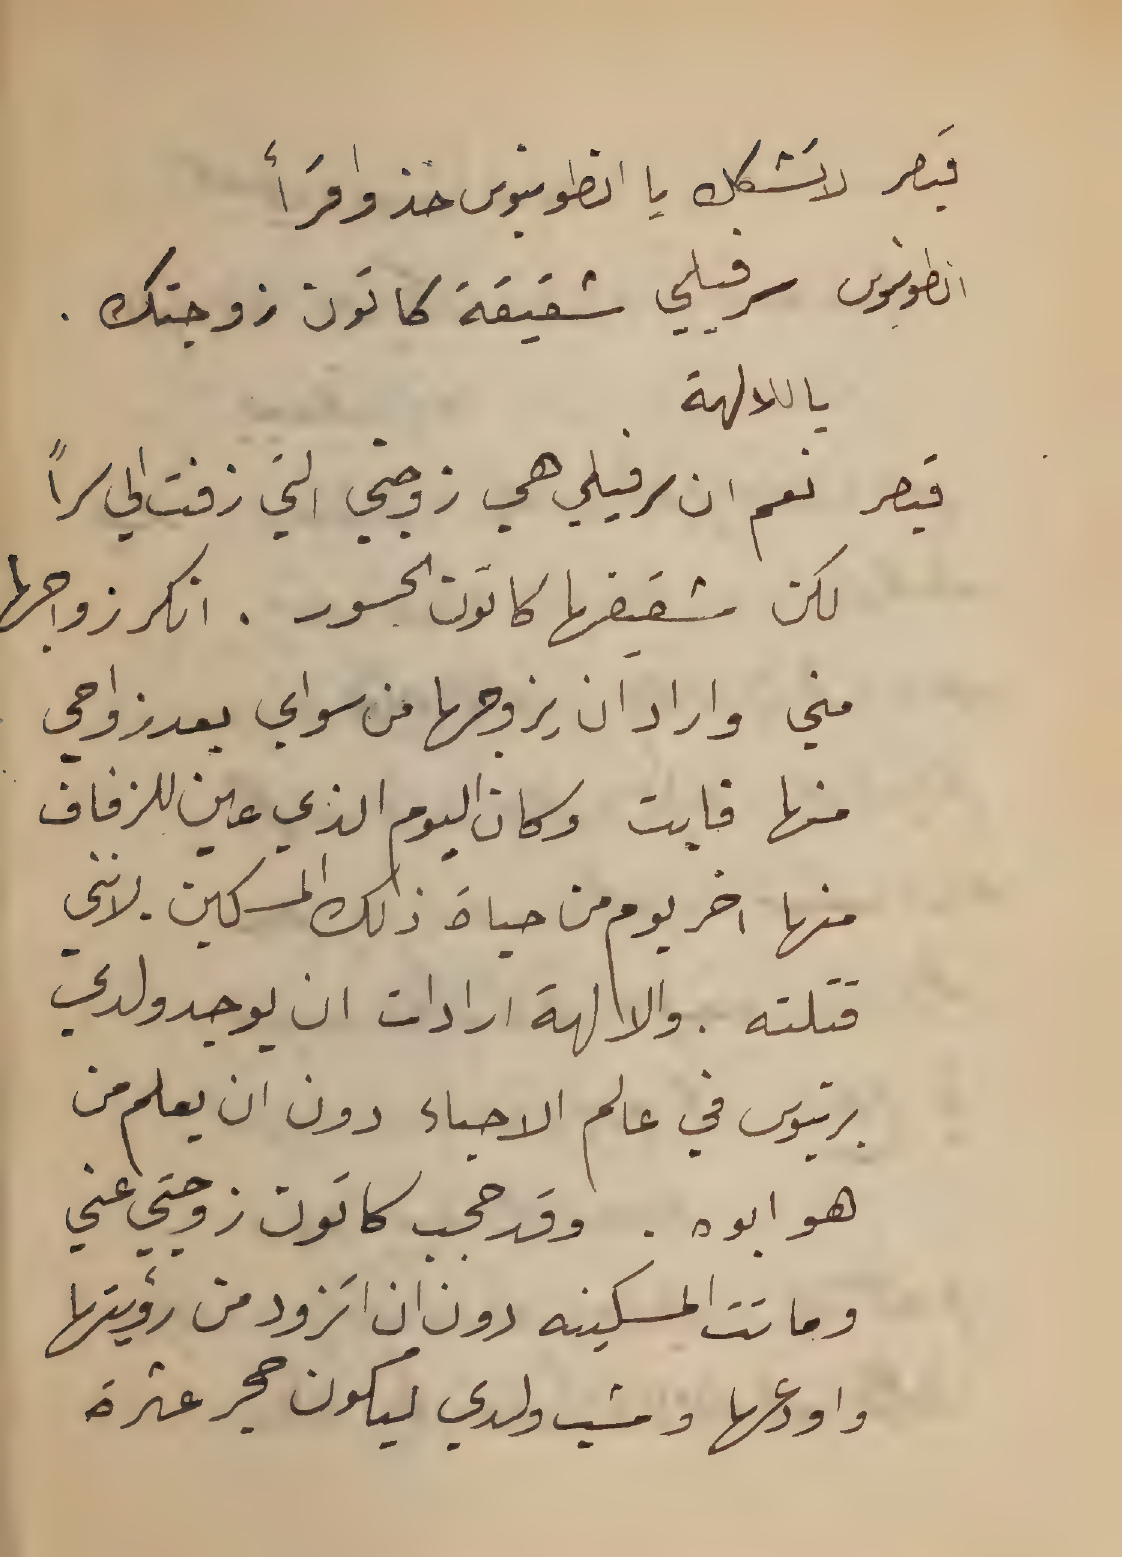 قيصر لا تشكك يا انطونيوس خذ واقرأ
انطونيوس سرفيلي شقيقة كاتون زوجتك .
يا للالهة
قيصر نعم ان سرفيلي هي زوجتي التي زفت الي سراً
لكن شقيقها كاتون الجسور . انكر زواجها
مني واراد ان يزوجها من سواي بعد زواجي
منها فابت وكان اليوم الذي عين للزفاف
منها اخر يوم من حياة ذلك المسكين . لانني
قتلته . والالهة ارادات ان يوجد ولدي
برتيوس في عالم الاحياء دون ان يعلم من
هو ابوه . وقد حجب كاتون زوجتي عني
وماتت المسكينه دون ان اتزود من رؤيتها
واودعها وشب ولدي ليكون حجر عثرة